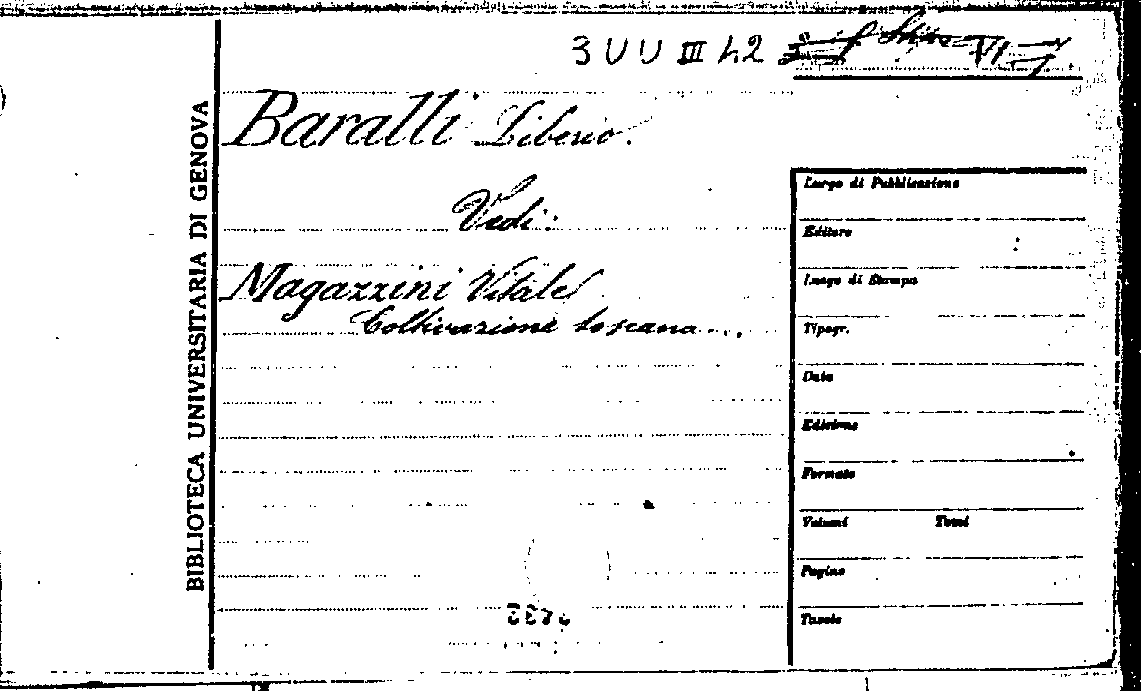 3 U U III 42
Baralli Liberio.
Vedi:
Magazzini Vitale
Coltivazione toscana...
BIBLIOTECA UNIVERSITARIA DI GENOVA
Luogo di Pubblicazione
Editore
Luogo di Stampa
Tipogr.
Data
Edizione
Formato
Volumi Tomi
Pagine
Tavole